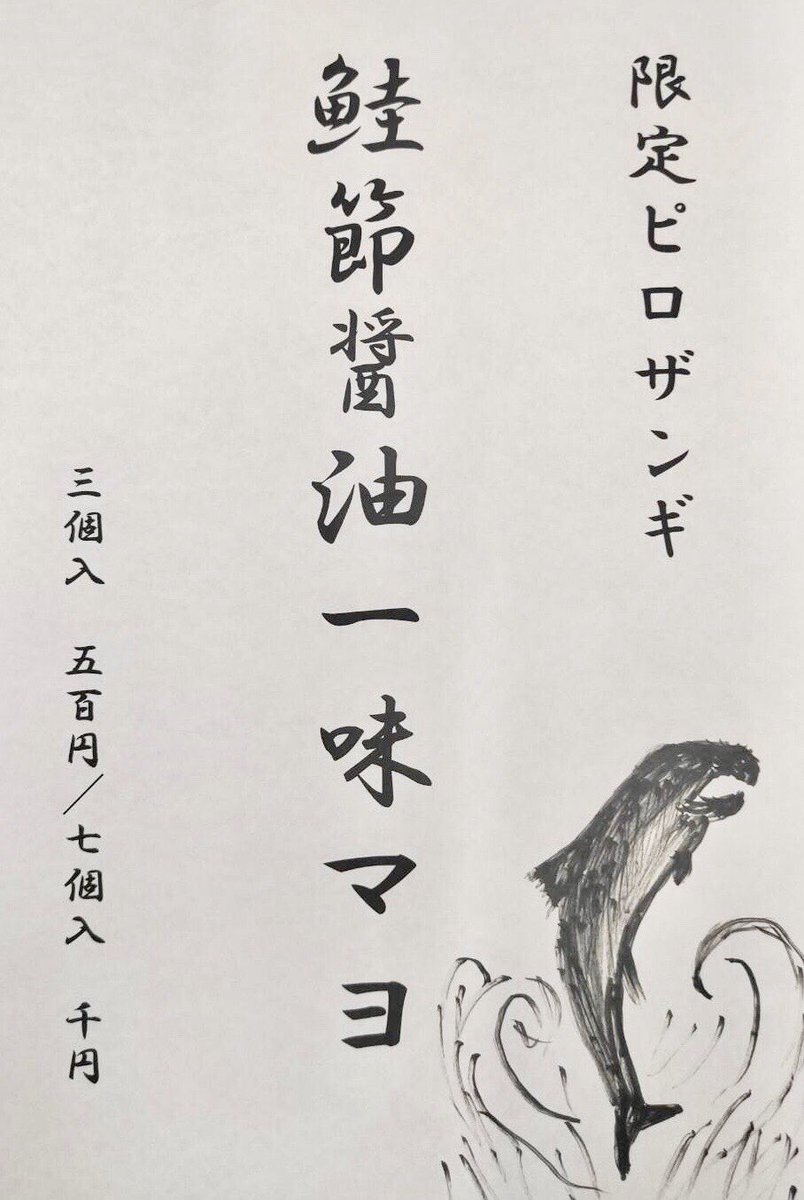 限定ピロザンギ
鮭節醤油一味マヨ
三個入　五百円／七個入　千円